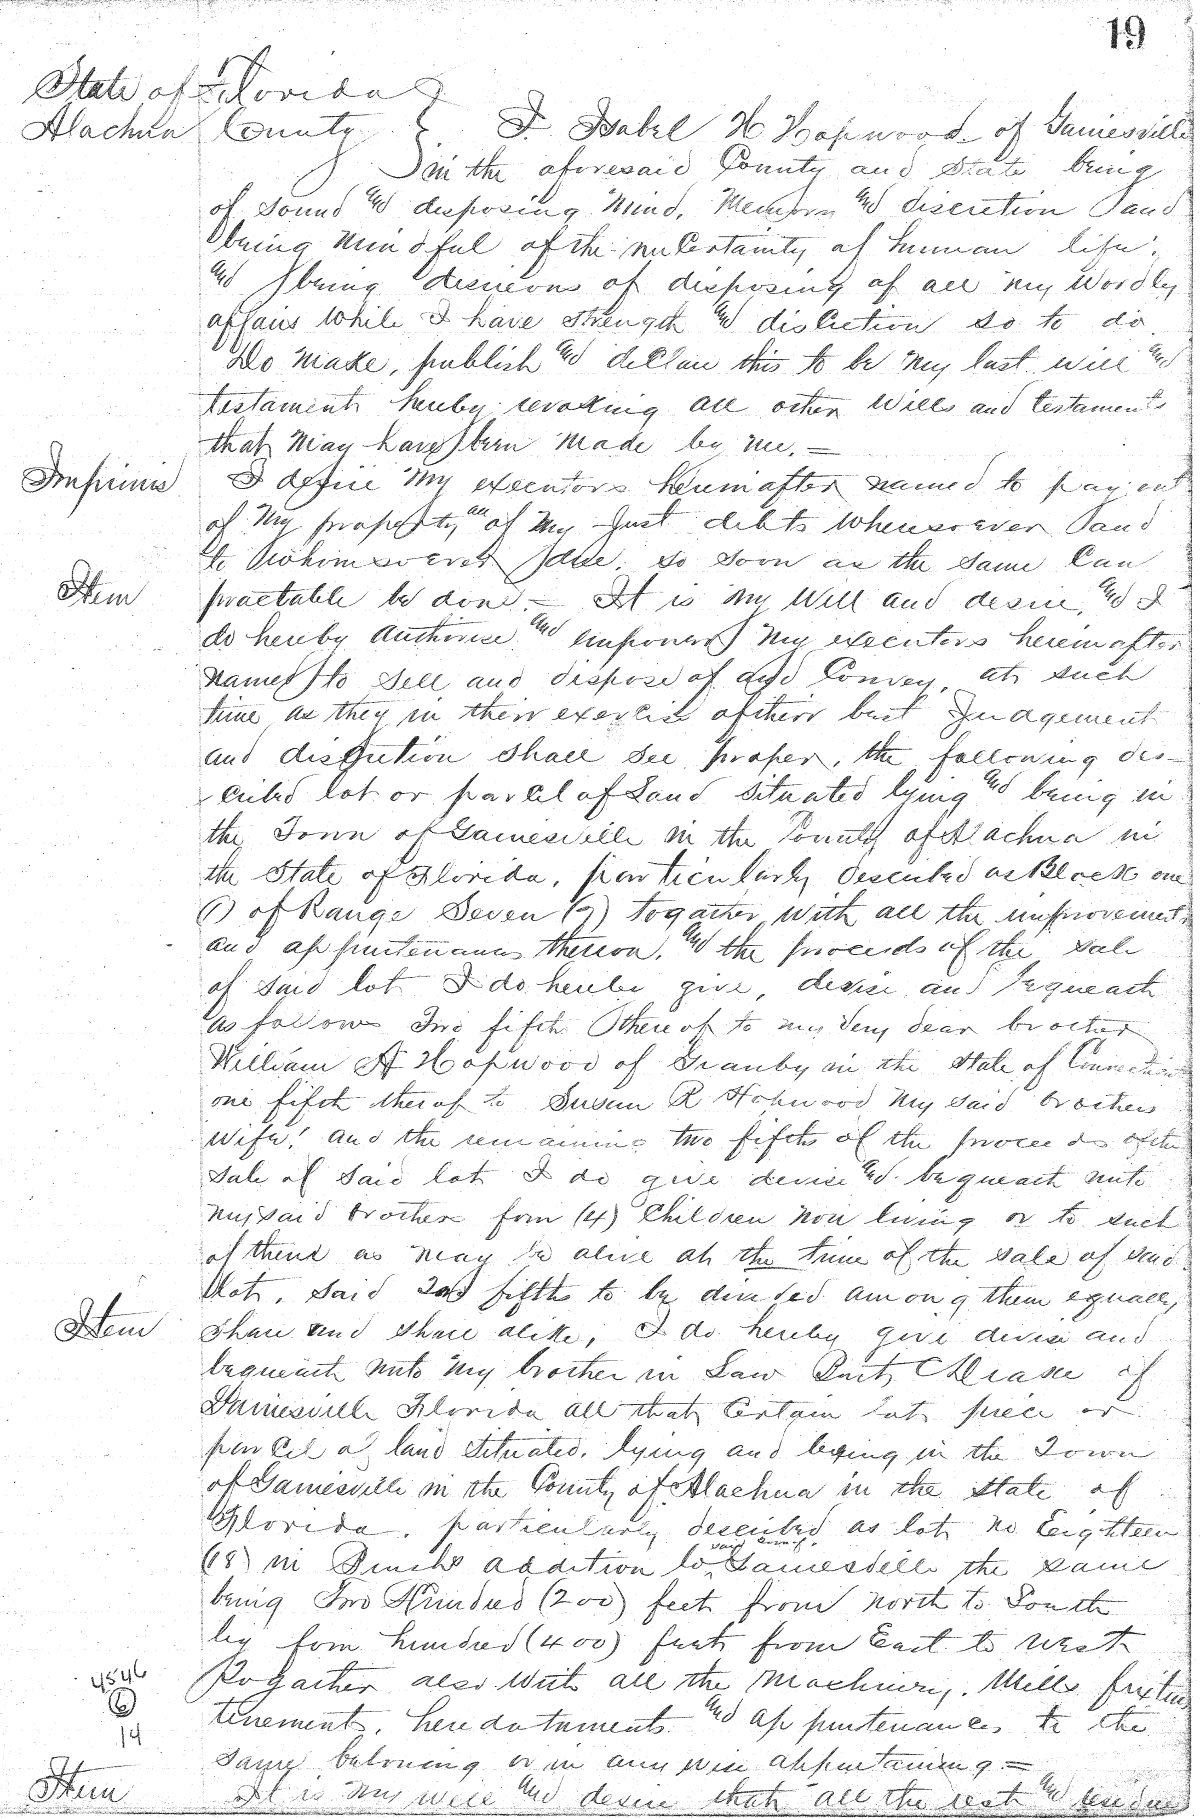 19
State of Florida
Alachua County } I Isabel H Hopwood of Gainesville
in the aforesaid County and State being
of sound and disposing mind, Memory and discretion and
being mindful of the uncertainity of human life,
and being desireous of disposing of all my wordly
affairs while I have strength and discretion so to do
Do make, publish and declare this to be my last will and
testament hereby revoking all other Wills and testaments
that may have been made by me. =
Imprimis I desire my executors hereinafter named to pay out
of my property all of my just debts whensoever and
to whomsoever due, so soon as the same can
Item practable be done. — It is my Will and desire, and I
do hereby authorise and empower my executors hereinafter
named to sell and dispose of and Convey, at such
time as they in their exercise of their best Judgement
and discretion shall see proper, the following des-
cribed lot or parcel of Land situated lying and being in
the Town of Gainesville in the County of Alachua in
the State of Florida, particularly described as Block one
(1) of Range Seven (7) togather with all the improvements
and appurtenances thereon, and the proceeds of the sale
of said lot I do hereby give, devise and bequeath
as follows Two fifth thereof to my very dear brother
William A Hopwood of Granby in the State of Connecticut
one fifth thereof to Susan R Hopwood my said brothers
wife! and the remaining two fifths of the proceeds of the
sale of said lot I do give devise and bequeath unto
my said brothers four (4) Children now living or to such
of them as may be alive at the time of the sale of said
lot, said two fifths to be divided among them equally
Item share and share alike, I do hereby give devise and
bequeath unto my brother in Law of
Gainesville Florida all that certain lot piece or
parcel of land situated, lying and being in the Town
of Gainesville in the County of Alachua in the State of
Florida, particularly described as lot no Eighteen
(18) in addition to Gainesville the same
being Two Hundred (200) feet from north to South
by four hundred (400) feet from East to West
Togather also with all the Machinery, Mills fixtures
4546
6
14
tenements, heredataments and appurtenances to the
same beloning or in any wise appurtaining =
Item It is my will and desire that all the rest and residue